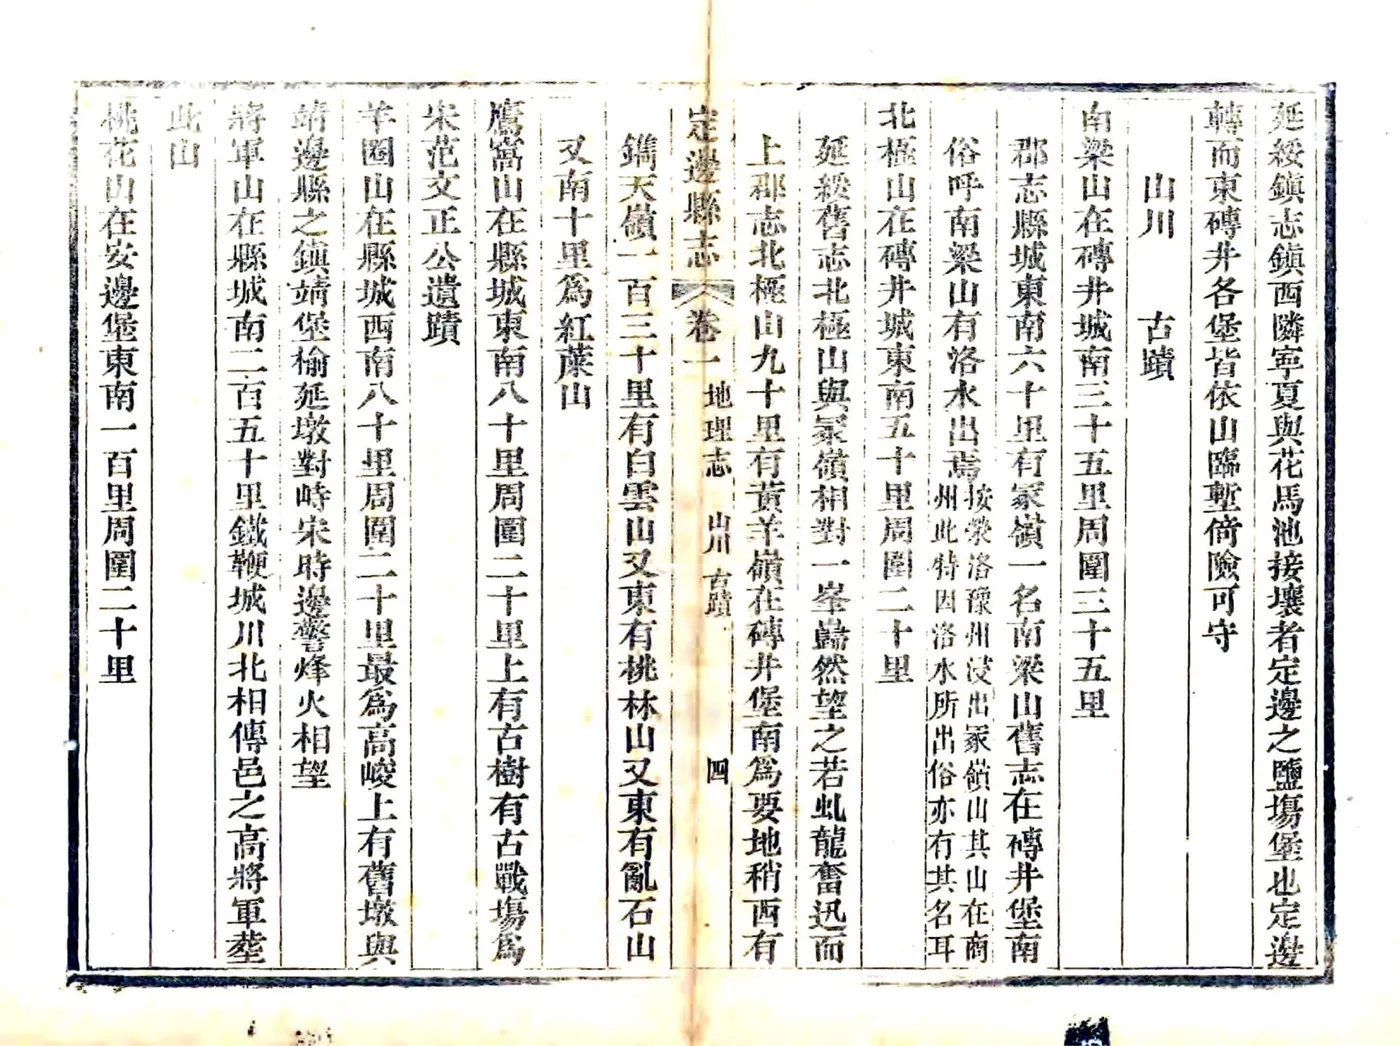 延綏鎮志鎮西隣寧夏與花馬池接壤者定邊之鹽塲堡也定邊
轉而東磚井各堡皆依山臨塹倚險可守
山川 古蹟
南梁山在磚井城南三十五里周圍三十五里
郡志縣城東南六十里有冡嶺一名南梁山舊志在磚井堡南
俗呼南梁山有洛水出焉按滎洛豫州浸出冡嶺山其山在商
州此特因洛水所出俗亦有其名耳
北極山在磚井城東南五十里周圍二十里
延綏舊志北極山與冡嶺相對一峯巋然望之若虬龍奮迅而
上郡志北極山九十里有黃羊嶺在磚井堡南爲要地稍西有
定邊縣志 卷一 地理志 山川 古蹟 四
鐫天嶺一百三十里有白雲山又東有桃林山又東有亂石山
又南十里爲紅蔴山
鷹窩山在縣城東南八十里周圍二十里上有古樹有古戰塲爲
宋范文正公遺蹟
羊圈山在縣城西南八十里周圍二十里最爲高峻上有舊墩與
靖邊縣之鎮靖堡榆延墩對峙宋時邊警烽火相望
將軍山在縣城南二百五十里鐵鞭城川北相傳邑之高將軍塟
此山
桃花山在安邊堡東南一百里周圍二十里